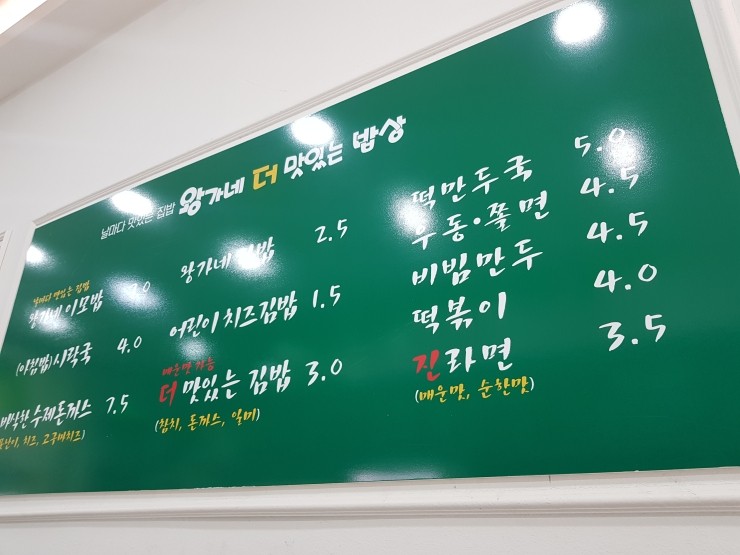 날마다 맛있는 집밥 왕가네 더 맛있는 밥상
날마다 맛있는 집밥
왕가네 이모밥
(아침밥)시락국 4.0
수제돈까스 7.5
치즈, 고구마치즈)
왕가네 김밥 2.5
어린이 치즈김밥 1.5
매운맛 가능
더 맛있는 김밥 3.0
(참치, 돈까스, 일미)
떡만두국 5.0
우동·쫄면 4.5
비빔만두 4.5
떡볶이 4.0
진라면 3.5
(매운맛, 순한맛)